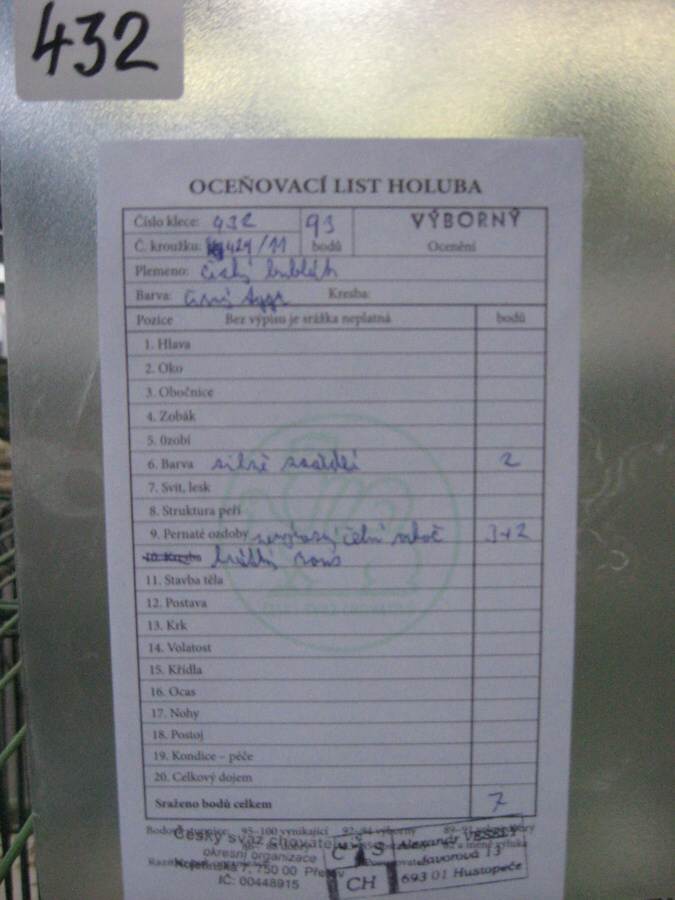 432
OCEŇOVACÍ LIST HOLUBA
Číslo klece: 432 93 VÝBORNÝ
Č. kroužku: 424/11 bodů Ocenění
Plemeno: český bublák
Barva: černý tygr Kresba:
Pozice Bez výpisu je srážka neplatná bodů
1. Hlava
2. Oko
3. Obočnice
4. Zobák
5. Ozobí
6. Barva silně 2
7. Svit, lesk
8. Struktura peří
9. Pernaté ozdoby čelní 3+2
10. Kresba krátký rous
11. Stavba těla
12. Postava
13. Krk
14. Volatost
15. Křídla
16. Ocas
17. Nohy
18. Postoj
19. Kondice – péče
20. Celkový dojem
Sraženo bodů celkem 7
95–100 vynikající 92–94 výborný
Český svaz chovatelů
okresní organizace
7, 750 00 Přerov
IČ: 00448915
Č S
CH
Alexandr
Javorová 13
693 01 Hustopeče